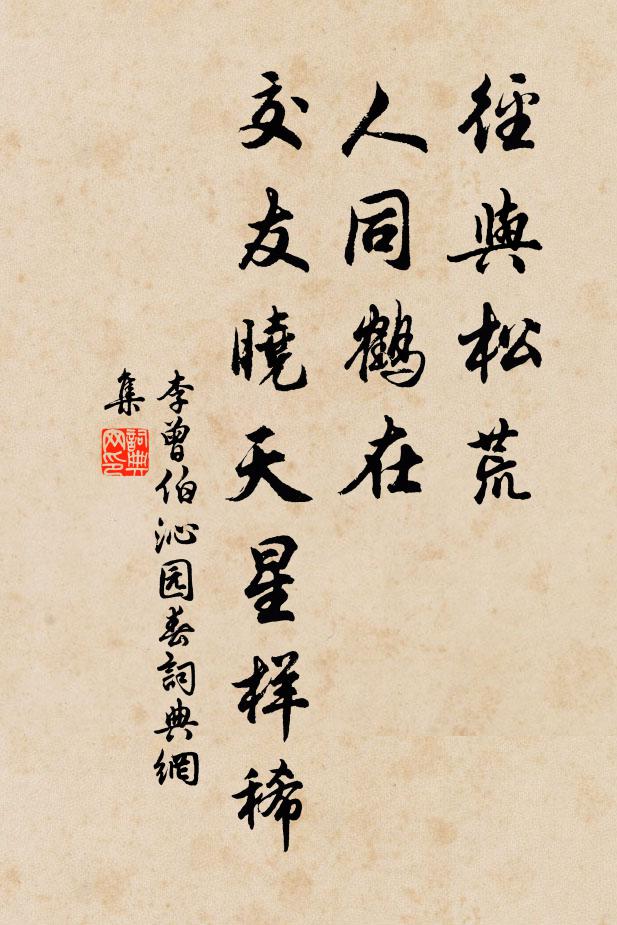 徑與松荒
人同鶴在
交友曉天星样稀
李曾伯沁园春詞典網
集
詞典
网印